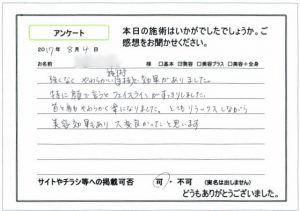 アンケート
本日の施術はいかがでしたでしょうか。ご感想をお聞かせください。
2017年 8月 4日
お名前 様 □基本 ☑美容 □美容プラス □美容+全身
施術
強くなく やわらかい で 効果がありました。
特に顔で言うと フェイスラインがすっきりしました。
首と肩もやわらかく楽になりました。とてもリラックスしながら
美容効果もあり 大変良かったと思います
サイトやチラシ等への掲載可否 可・不可 (実名は出しません)
どうもありがとうございました。